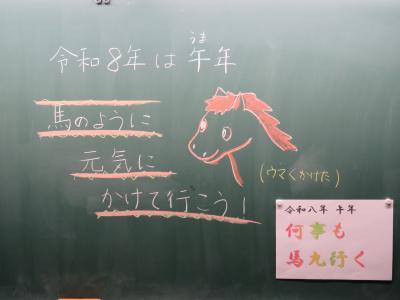 令和8年は午年
うま
馬のように
元気に
かけて行こう!
(ウマくかけた)
令和八年 午年
何事も
馬九行く